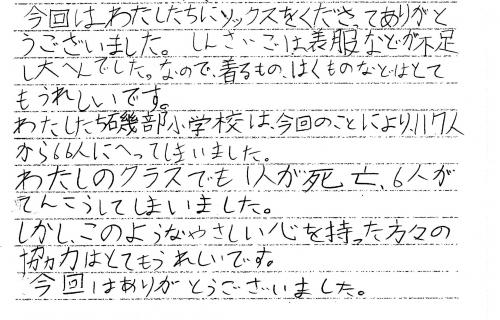 今回は、わたしたちにソックスをくださってありがと
うございました。しんさいごは衣服などが不足
し大へんでした。なので、着るもの、はくものなどはとて
もうれしいです。
わたしたち磯部小学校は、今回のことにより、117人
から66人にへってしまいました。
わたしのクラスでも1人が死亡、6人が
てんこうしてしまいました。
しかし、このようなやさしい心を持った方々の
協力はとてもうれしいです。
今回はありがとうございました。